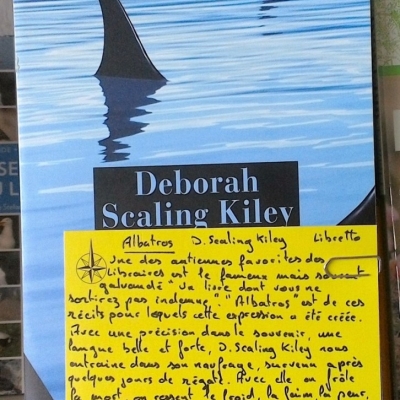 Deborah
Scaling Kiley
Albatros D. Scaling Kiley Libretto
Une des antiennes favorites des
libraires est le fameux mais souvent
galvaudé "un livre dont vous ne
sortirez pas indemne". "Albatros" est de ces
récits pour lesquels cette expression a été créée.
Avec une précision dans le souvenir, une
langue belle et forte, D. Scaling Kiley nous
entraîne dans son naufrage, survenu après
quelques jours de régate. Avec elle on frôle
la mort, on ressent le froid, la faim, la peur,
SE
U L